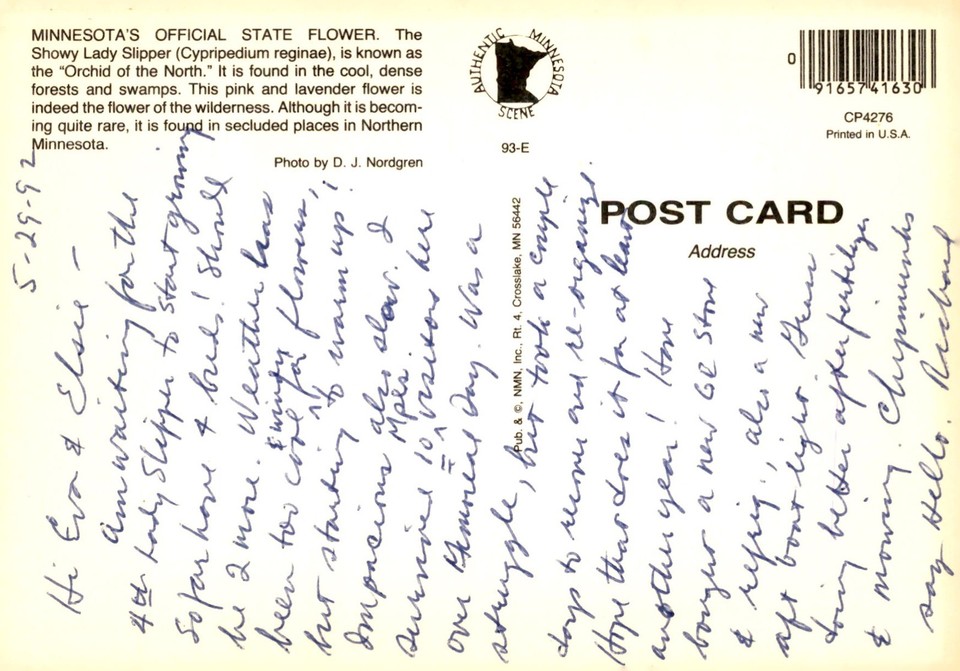 MINNESOTA'S OFFICIAL STATE FLOWER. The
Showy Lady Slipper (Cypripedium reginae), is known as
the "Orchid of the North." It is found in the cool, dense
forests and swamps. This pink and lavender flower is
indeed the flower of the wilderness. Although it is becom-
ing quite rare, it is found in secluded places in Northern
Minnesota.
Photo by D. J. Nordgren
AUTHENTIC MINNESOTA
SCENE
93-E
0
91657 41630
CP4276
Printed in U.S.A.
POST CARD
Address
Pub. & ©, NMN, Inc., Rt. 4, Crosslake, MN 56442
5-29-92
Hi Eva & Elsie –
Am waiting for the
4th Lady Slipper to start growing
So far have 4 buds! Should
be 2 more. Weather has
been too cool & windy for flowers,
but starting to warm up!
Impatiens also slow. I
survived 10 Mpls visitors here
over Memorial Day. Was a
struggle, but took a couple
days to recover and re-organize
Hope that does it for at least
another year! Have
bought a new GE stove
& refrig, also a new
aft boat light. Grass
doing better after fertilizer
& mowing. Chipmunks
say Hello. Richard